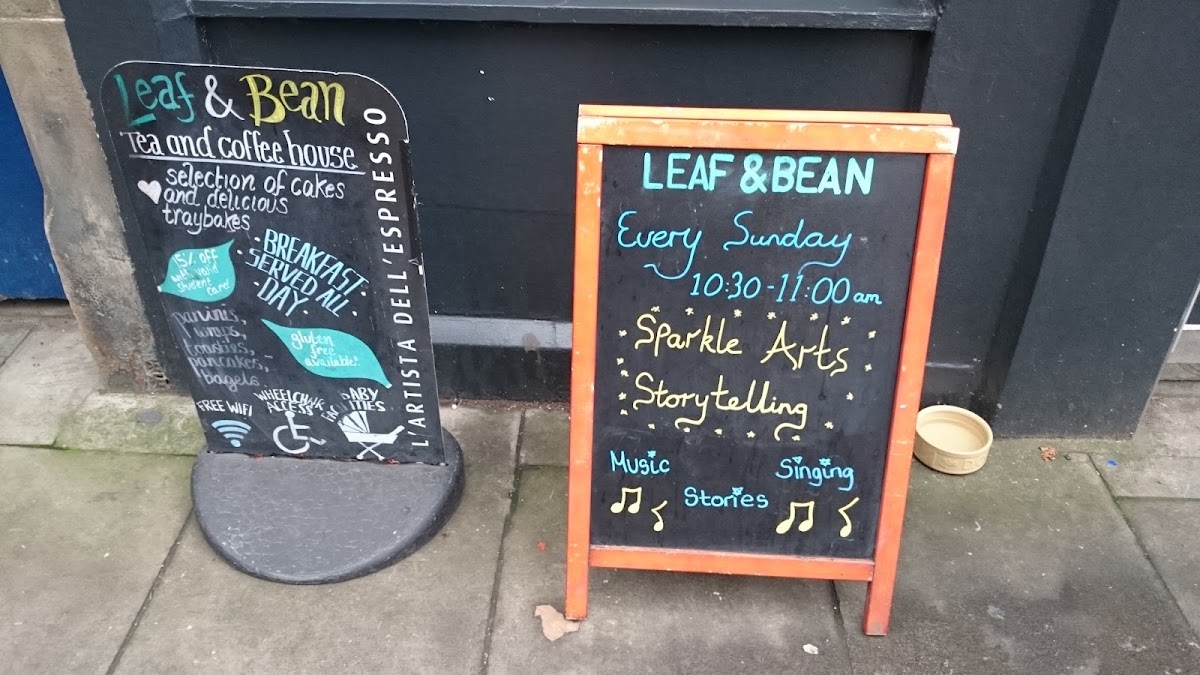 Leaf & Bean
Tea and coffee house
selection of cakes
and delicious
traybakes
15% off
with valid
student card
BREAKFAST
SERVED ALL
DAY
paninis,
wraps,
toasties,
pancakes,
bagels
gluten
free
available!
FREE WIFI
WHEELCHAIR
ACCESS
BABY
FACILITIES
L'ARTISTA DELL'ESPRESSO
LEAF & BEAN
Every Sunday
10:30-11:00am
Sparkle Arts
Storytelling
Music
Singing
Stories